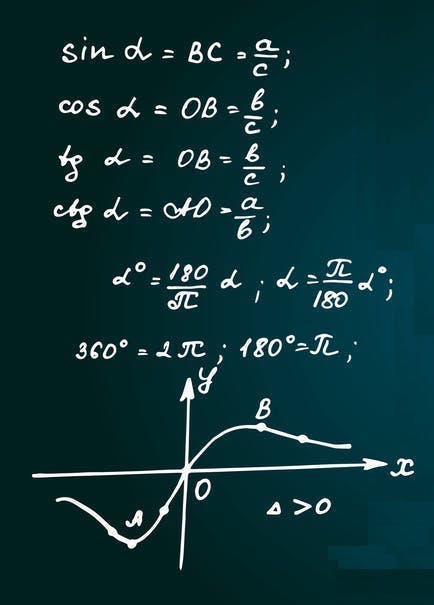 sin α = BC = a/c;
cos α = OB = в/c;
tg α = OB = в/c;
ctg α = AD = a/в;
α° = 180/π α; α = π/180 α°;
360° = 2π; 180° = π;
y
B
x
O
A
Δ > 0